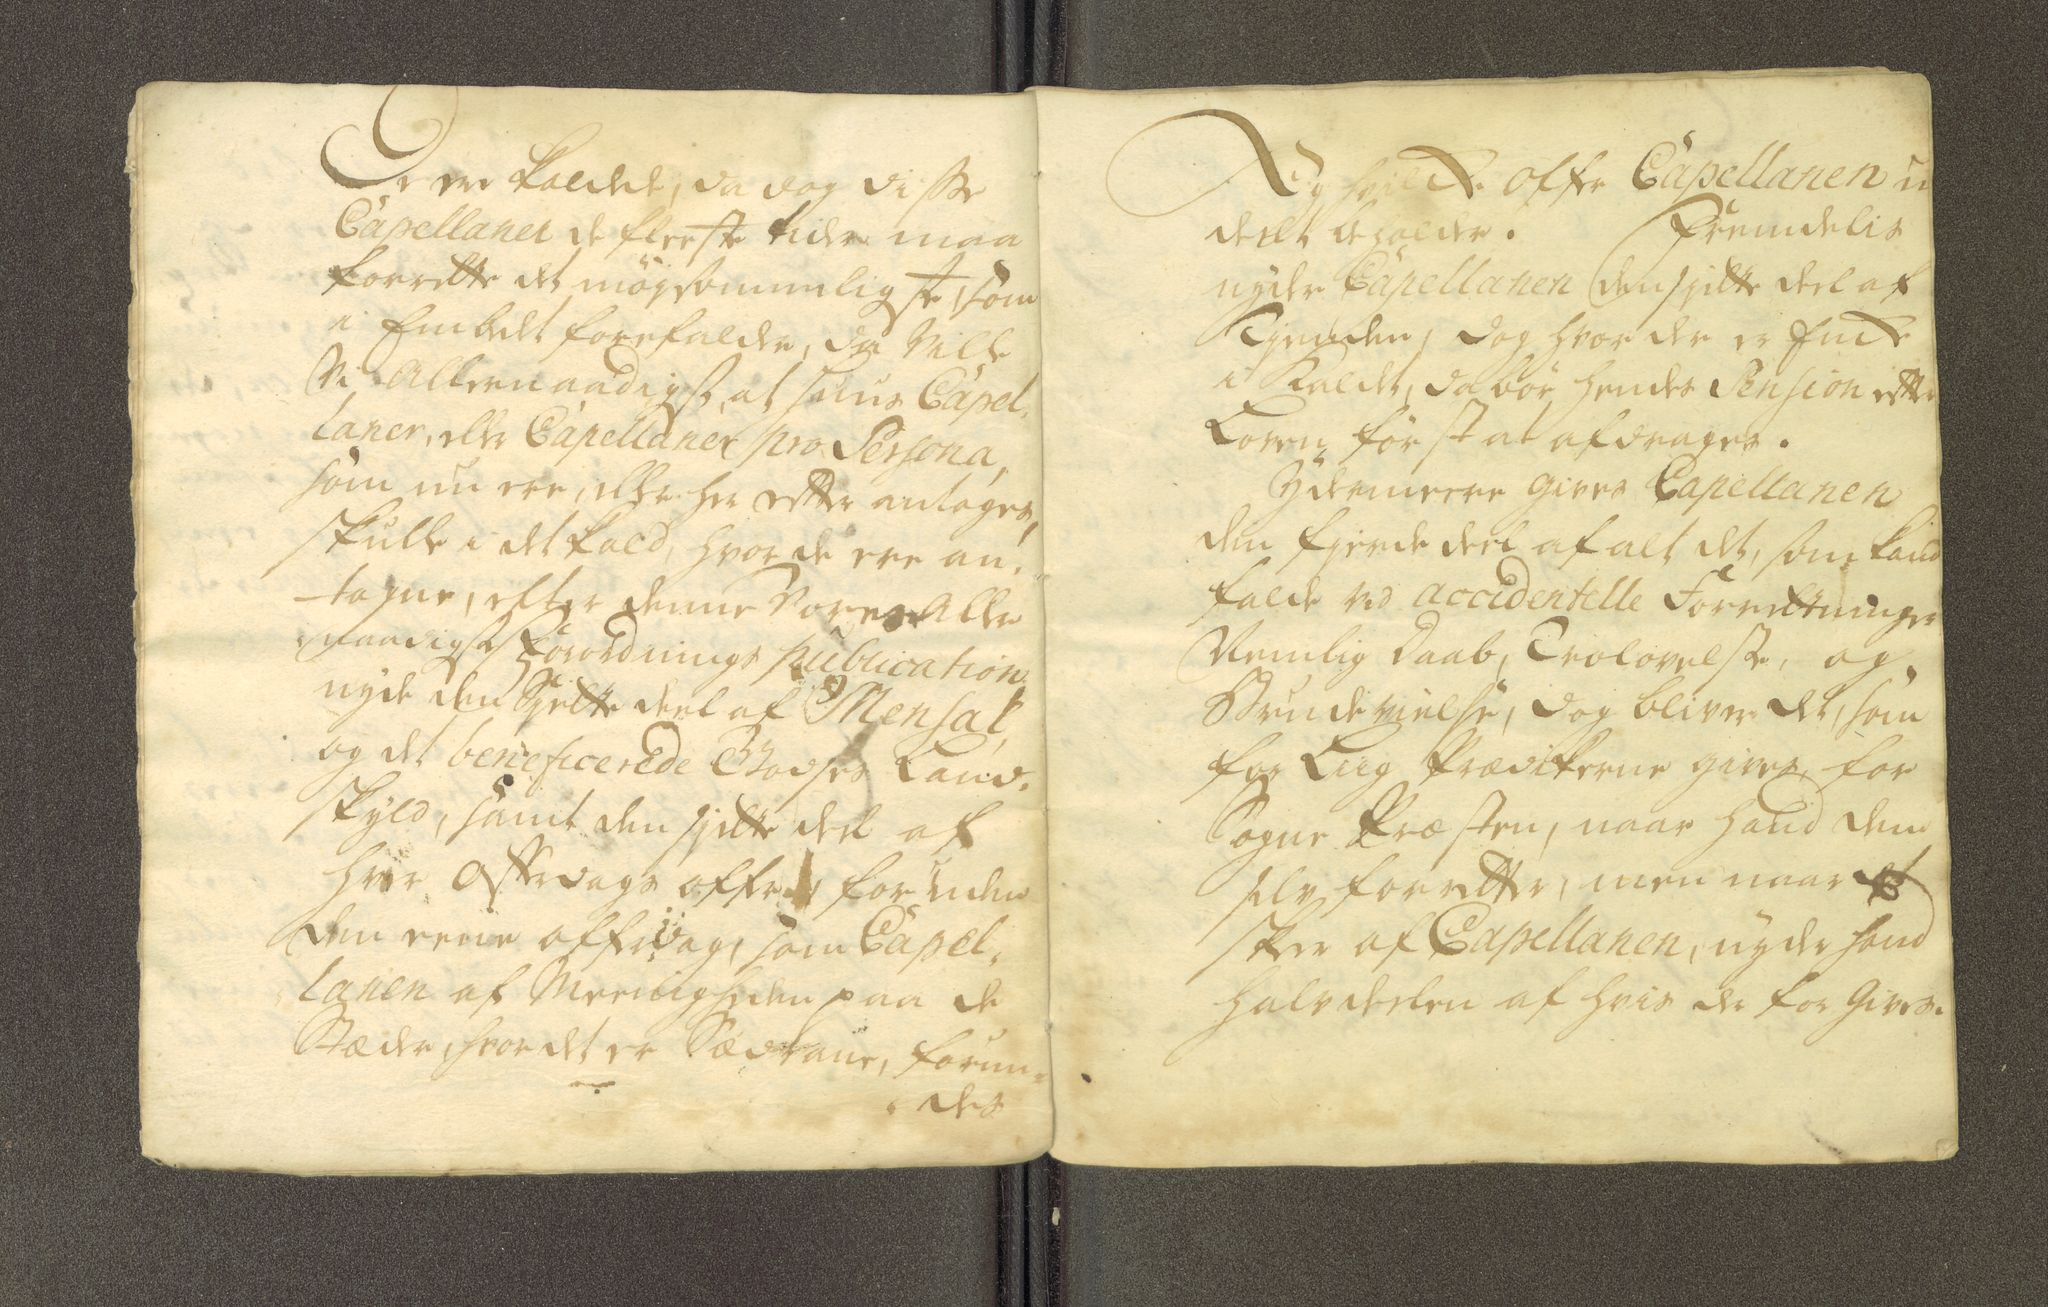 De ere kaldede, da dog disse
Capellaner de fleeste tider maa
forrette det möysommeligste, som
i Embedet forefalder, da Ville
Vi Allernaadigst, at saadanne Capel-
laner, eller Capellaner pro Persona,
som nu ere, eller her efter antages,
skulle i det Kald, hvor de ere an-
tagne, efter denne Vores Aller-
naadigste Forordnings publication
nyde den Siette deel af Mensal
og det beneficerede Godses Land-
skyld, samt den sjette deel af
hver Offerdags offer, foruden
den eene offerdag, som Capel-
lanen af Meenigheden paa de
Stæder, hvor det er Sædvane, forun-
des
Og hvilcke offer Capellanen u
deelt beholder. Fremdelis
nyder Capellanen den sjette deel af
Tjenden, dog hvor der er Encke
i Kaldet, da bör hendes Pension efter
Loven först at afdrages.
Ydermeere gives Capellanen
den fjerde deel af alt det, som kand
falde ved accidentelle Forretninger
Nemlig Daab, Trolovelse, og
Brudevielse, dog bliver det, som
for Liig Prædikerne gives, for
Sogne Præsten, naar hand dem
selv forretter, men naar et
skeer af Capellanen, nyder hand
halvdeelen af hvis der for Gives.